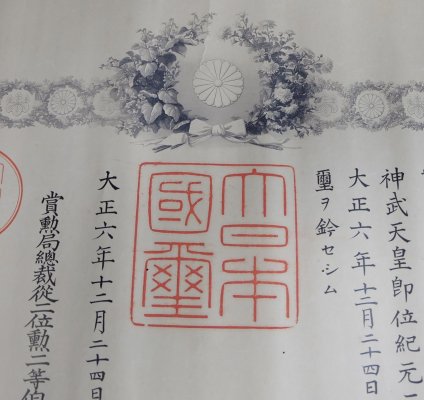 神武天皇即位紀元
大正六年十二月二十四日
璽ヲ鈐セシム
大日本
國璽
大正六年十二月二十四日
賞勲局總裁從二位勲二等伯